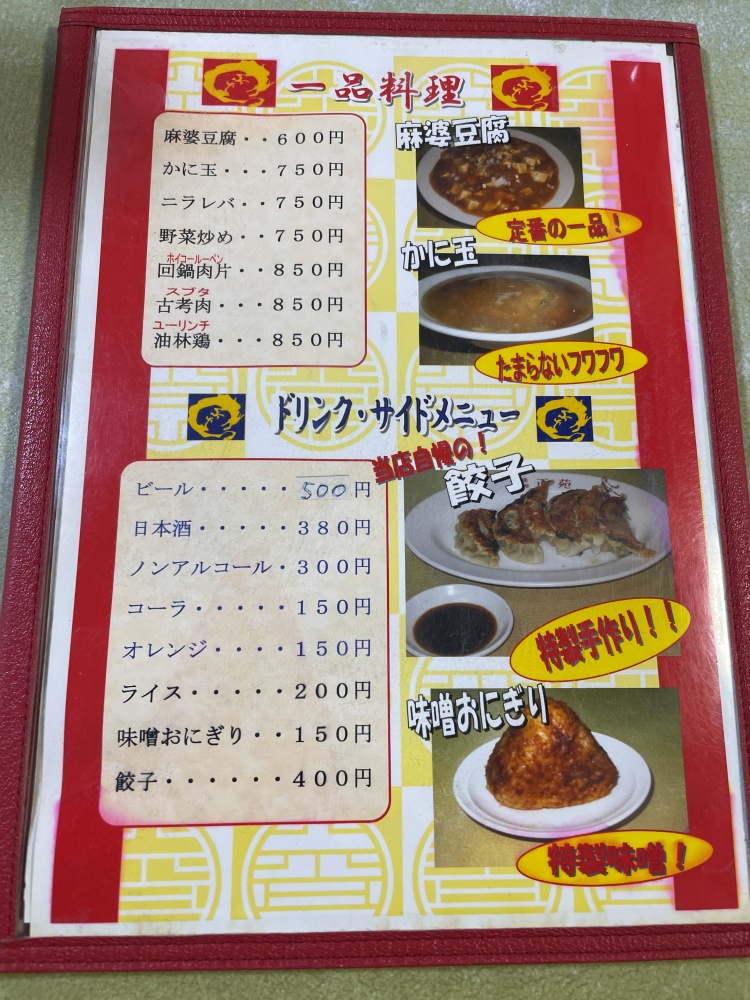 一品料理
麻婆豆腐・・600円
かに玉・・・750円
ニラレバ・・750円
野菜炒め・・750円
ホイコールーペン
回鍋肉片・・850円
スブタ
古考肉・・・850円
ユーリンチ
油林鶏・・・850円
麻婆豆腐
定番の一品!
かに玉
たまらないフワフワ
ドリンク・サイドメニュー
ビール・・・・・500円
日本酒・・・・・380円
ノンアルコール・300円
コーラ・・・・・150円
オレンジ・・・・150円
ライス・・・・・200円
味噌おにぎり・・150円
餃子・・・・・・400円
当店自慢の!
餃子
特製手作り!!
味噌おにぎり
特製味噌!